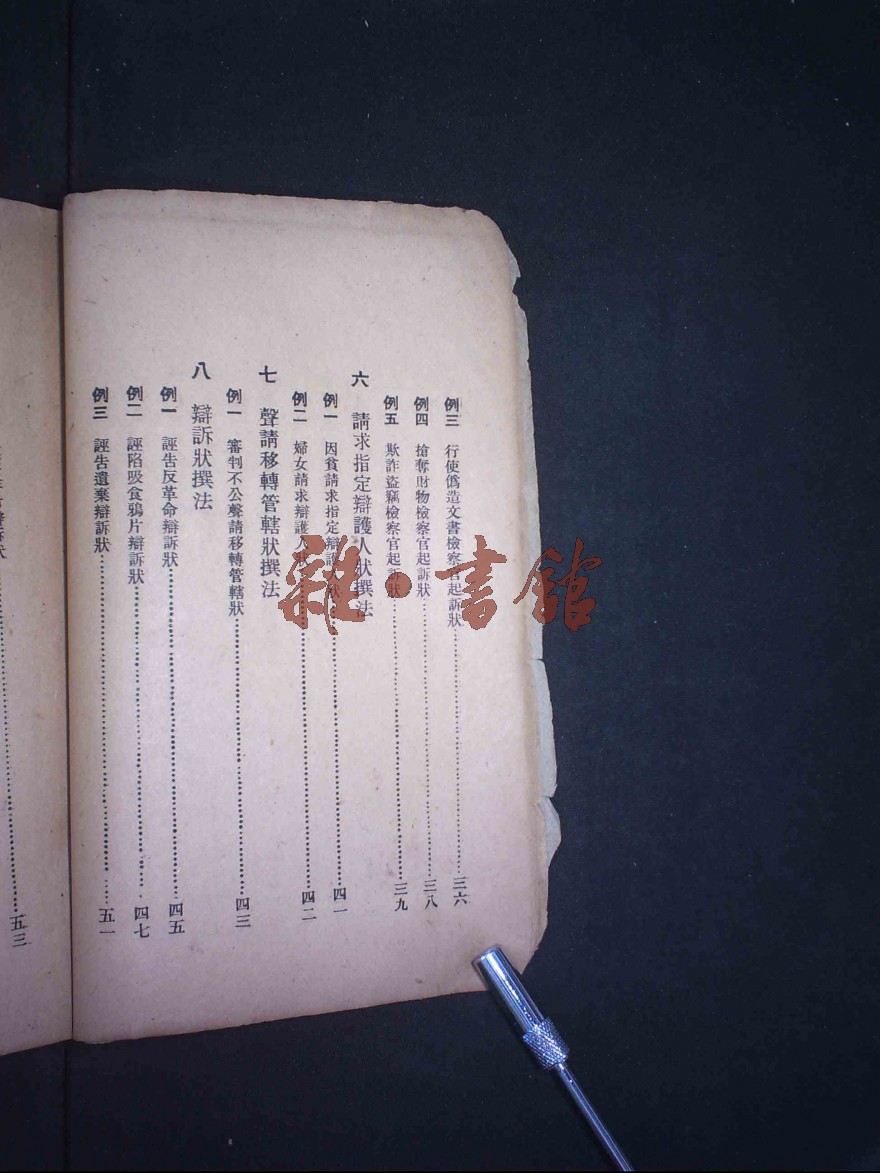 例三 行使僞造文書檢察官起訴狀……三六
例四 搶奪財物檢察官起訴狀……三八
例五 欺詐盜竊檢察官起訴狀……三九
六 請求指定辯護人狀撰法
例一 因貧請求指定辯護人狀……四一
例二 婦女請求辯護人狀……四二
七 聲請移轉管轄狀撰法
例一 審判不公聲請移轉管轄狀……四三
八 辯訴狀撰法
例一 誣告反革命辯訴狀……四五
例二 誣陷吸食鴉片辯訴狀……四七
例三 誣告遺棄辯訴狀……五一
辯訴狀……五三
雜·書館